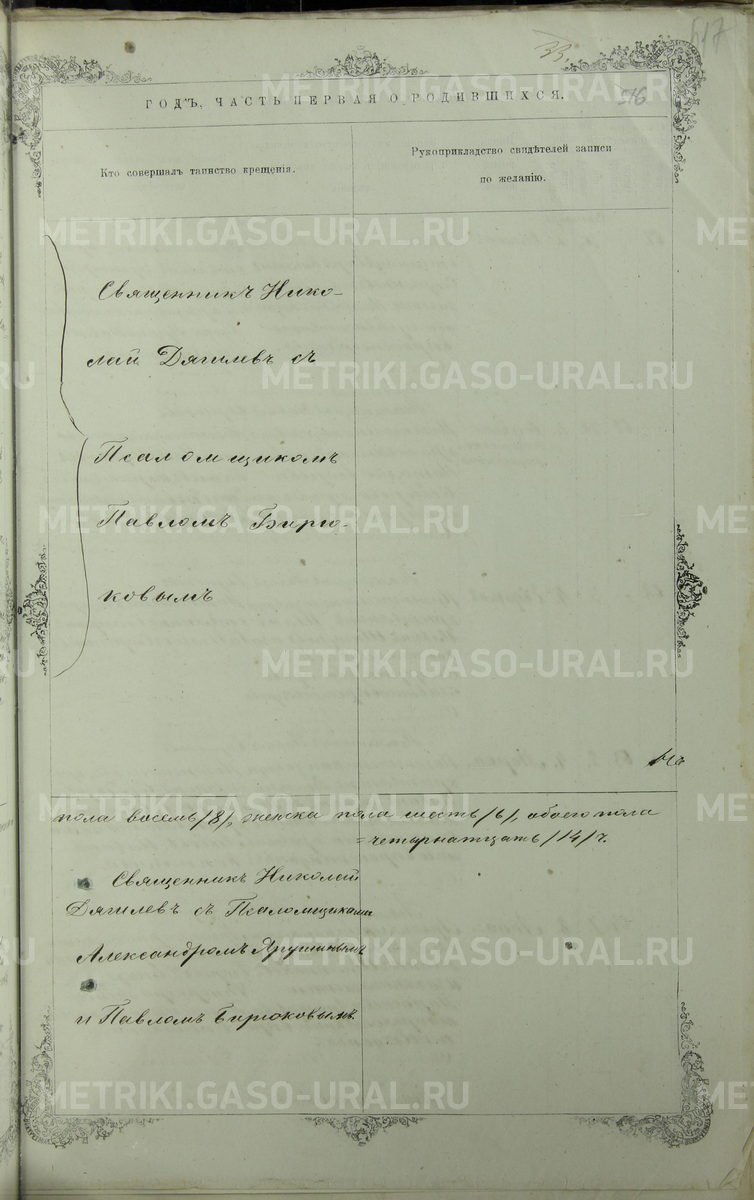 517
33
516
ГОДЪ, ЧАСТЬ ПЕРВАЯ О РОДИВШИХСЯ.
Кто совершалъ таинство крещенія.
Рукоприкладство свидѣтелей записи
по желанію.
Священникъ Нико-
лай Дягилевъ съ
Псаломщикомъ
Павломъ Бирю-
ковымъ
пола восемь /8/, женска пола шесть /6/, обоего пола
= четырнатцать /14/ ч.
Священникъ Николай
Дягилевъ съ Псаломщиками
Александромъ Ярушинымъ
и Павломъ Бирюковымъ.
METRIKI.GASO-URAL.RU